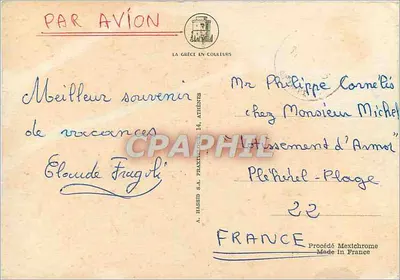 PAR AVION
LA GRÈCE EN COULEURS
Meilleur souvenir
de vacances
Claude Fragoli
A. HASSID S.A. 14, ATHÈNES
CPAPHIL
Mr Philippe Cornelis
chez Monsieur Michel
"Lotissement d'Armor"
Pléhérel-Plage
22
FRANCE
Procédé Mexichrome
Made in France